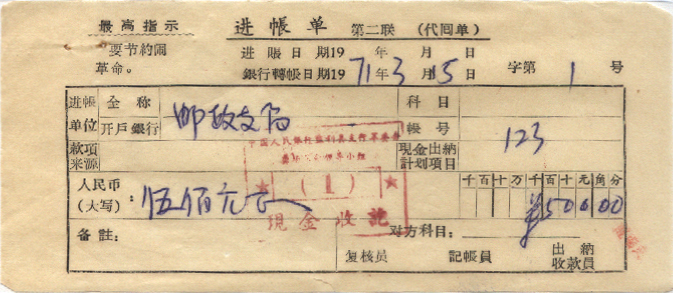 最高指示
要节約闹
革命。
进帐单 第二联 (代囬单)
进賬日期19 年 月 日
銀行轉帐日期1971年3月15日 字第 1 号
进帐单位 全称 邮政支局 科目
开戶銀行 帐号 123
款項来源 現金出納計划項目
人民币(大写): 伍佰元正 千百十万千百十元角分
¥50000
(1)
現金收訖
备註: 对方科目:
复核員 記帐員 出納收款員